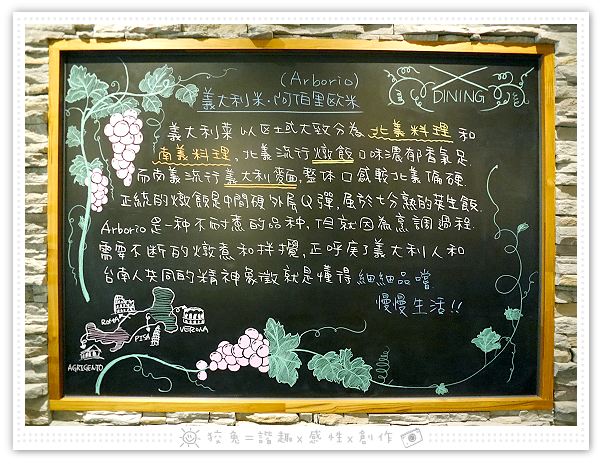 (Arborio)
義大利米.阿佰里歐米
DINING
義大利菜以区域大致分為北義料理和
南義料理,北義流行燉飯口味濃郁香氣足.
而南義流行義大利麵,整体口感較北義偏硬.
正統的燉飯是中間硬外局Q彈,屬於七分熟的夾生飯.
Arborio是一种不耐煮的品种,但就因為烹調過程.
需要不断的燉煮和拌攪,正呼応了義大利人和
台南人共同的精神象徵就是懂得細細品嚐.
慢慢生活!!
ROMA
PISA
VERONA
AGRIGENTO
狡兔=諧趣x感性x創作